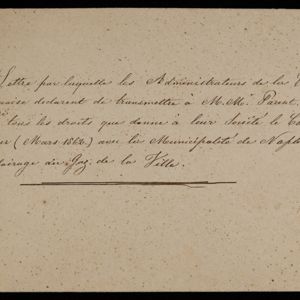 Lettre par laquelle les Administrateurs de la C
naise déclarent de transmettre à M.M. Parent,
tous les droits que donne à leur Société le Co
er (Mars 1862) avec la Municipalité de Napl
lairage au Gaz de la Ville.